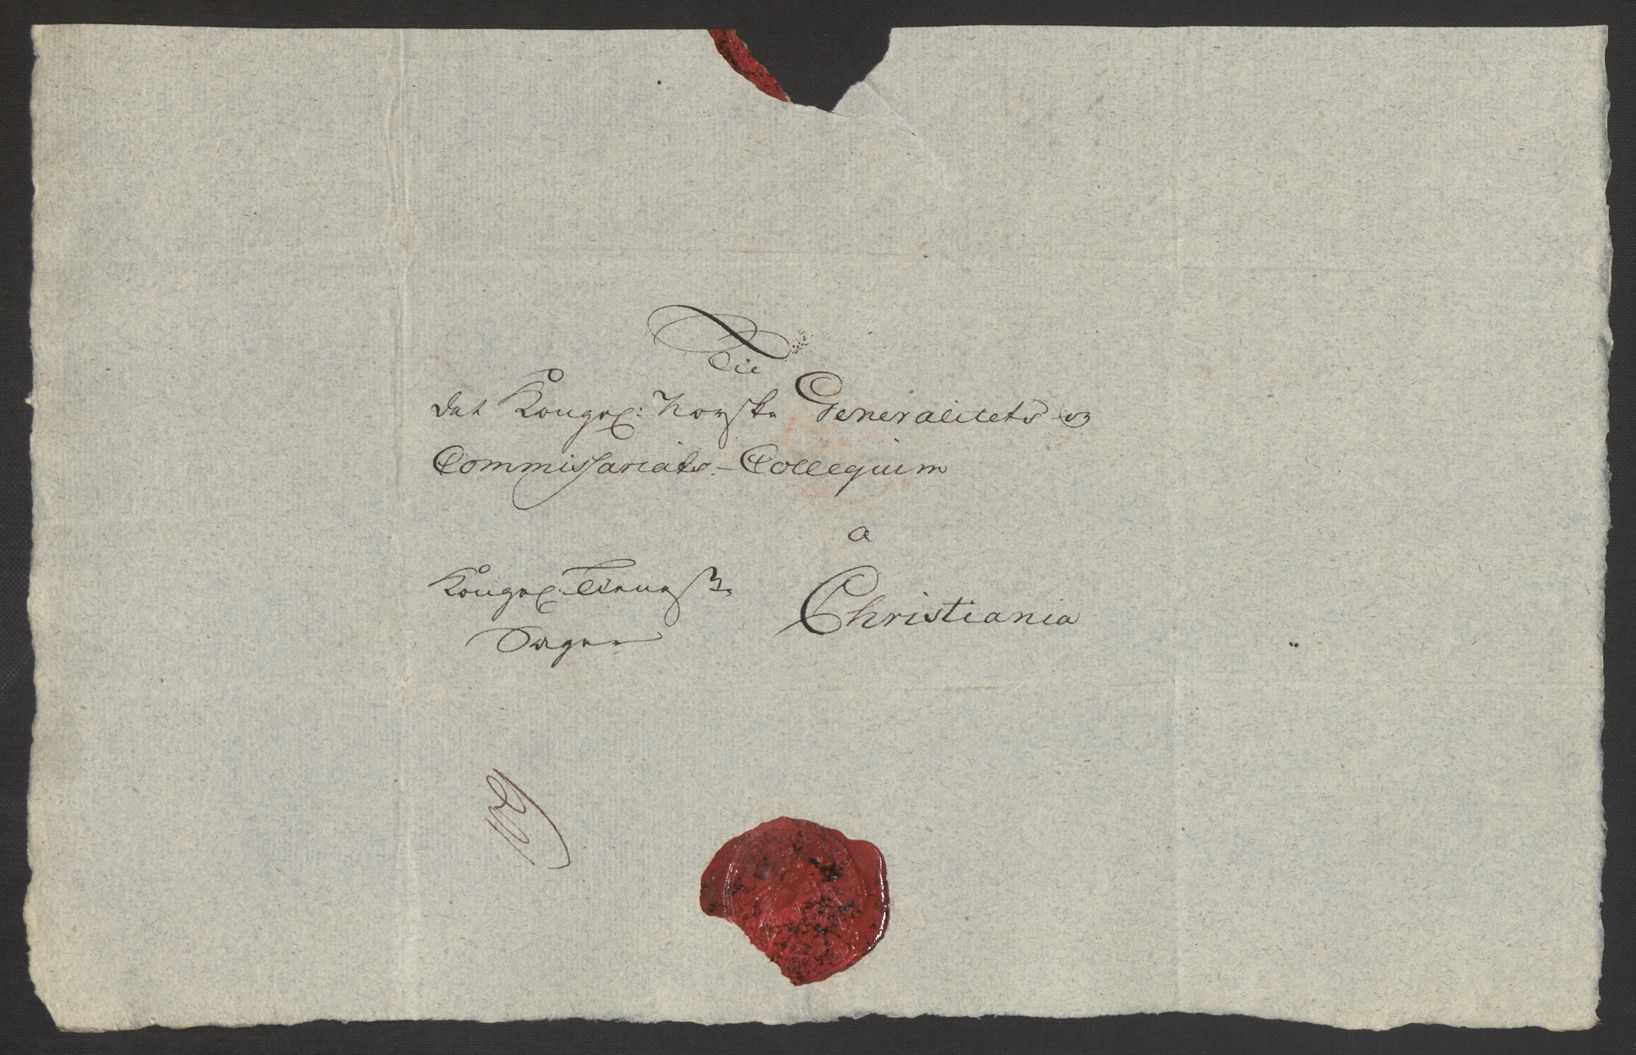 Til
det Kongel: Norske Generalitets og
Commissariats-Collegium
a
Christiania
Kongel: Tieneste
Sager